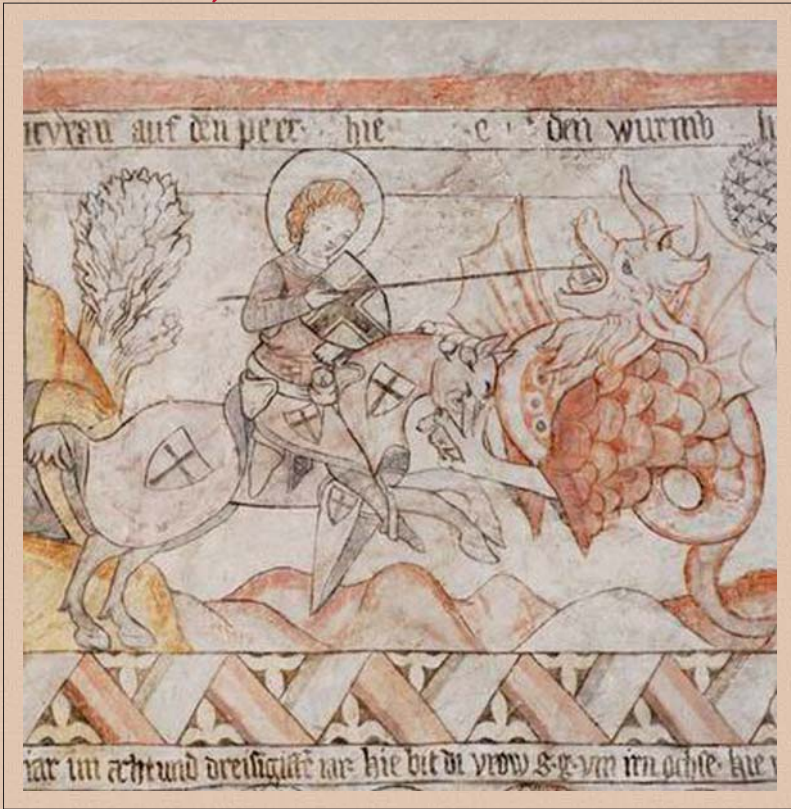 auf den perr hie den wurmb
iar im acht und dreisigiste iar hie bit di vrow s.g. vm irn ochse. hie